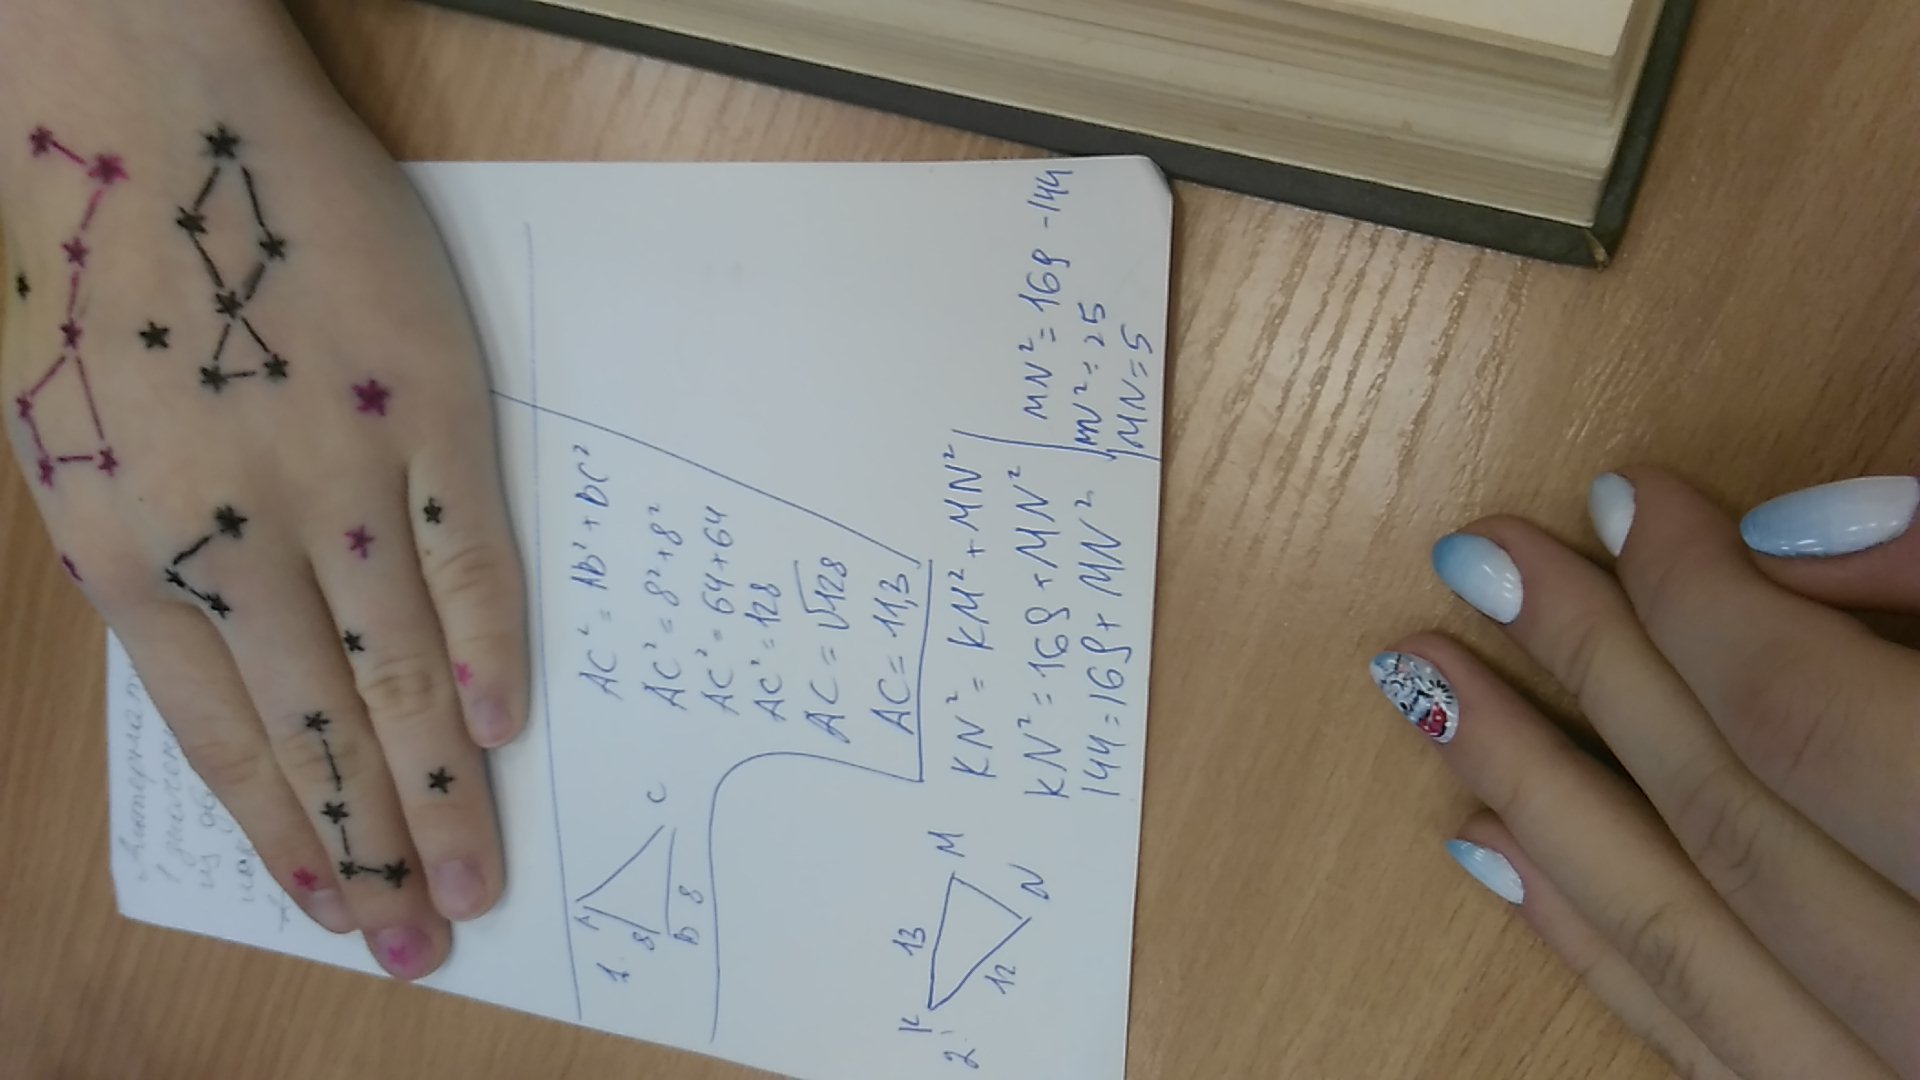 1.
A
8
B 8
C
AC² = AB² + BC²
AC² = 8² + 8²
AC² = 64 + 64
AC² = 128
AC = √128
AC = 11,3
2.
K 13 M
12 N
KN² = KM² + MN²
KN² = 169 + MN²
144 = 169 + MN²
MN² = 169 - 144
MN² = 25
MN = 5